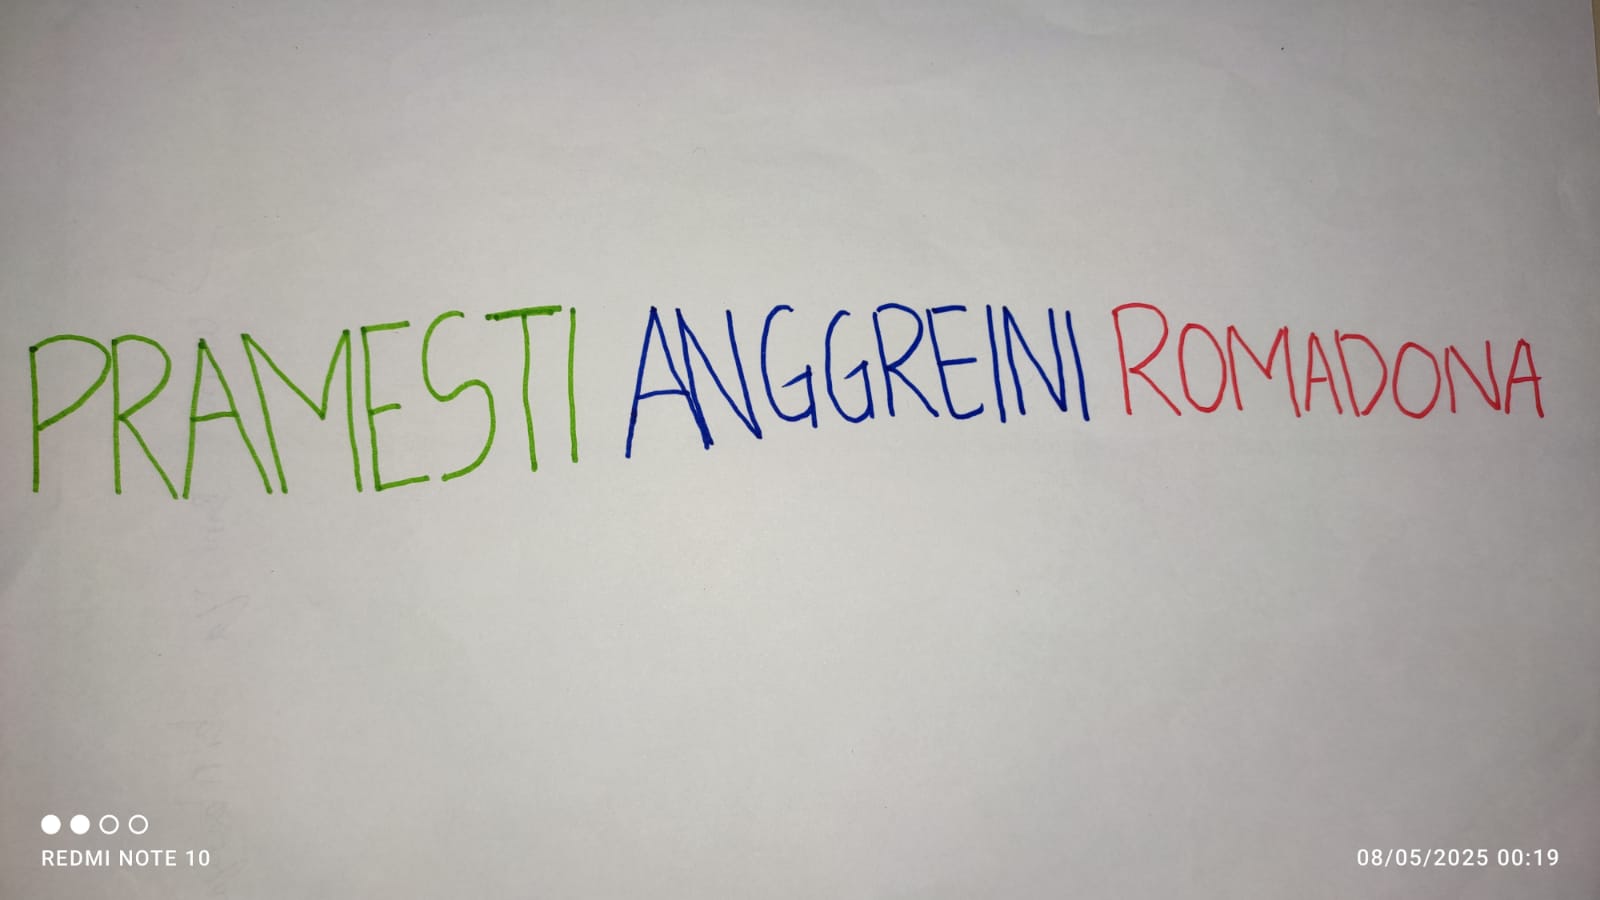 PRAMESTI ANGGREINI ROMADONA
REDMI NOTE 10
08/05/2025 00:19